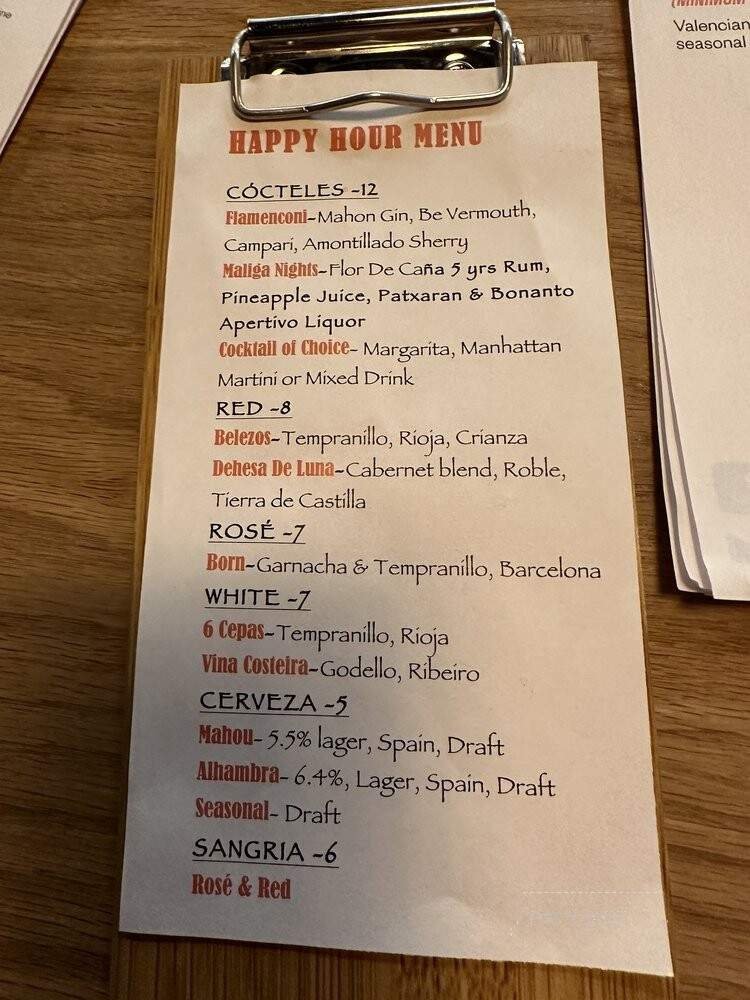 HAPPY HOUR MENU
CÓCTELES -12
Flamenconi-Mahon Gin, Be Vermouth,
Campari, Amontillado Sherry
Maliga Nights-Flor De Caña 5 yrs Rum,
Pineapple Juice, Patxaran & Bonanto
Apertivo Liquor
Cocktail of Choice- Margarita, Manhattan
Martini or Mixed Drink
RED -8
Belezos-Tempranillo, Rioja, Crianza
Dehesa De Luna-Cabernet blend, Roble,
Tierra de Castilla
ROSÉ -7
Born-Garnacha & Tempranillo, Barcelona
WHITE -7
6 Cepas-Tempranillo, Rioja
Vina Costeira-Godello, Ribeiro
CERVEZA -5
Mahou- 5.5% lager, Spain, Draft
Alhambra- 6.4%, Lager, Spain, Draft
Seasonal- Draft
SANGRIA -6
Rosé & Red
(MINIMUM
Valencian
seasonal